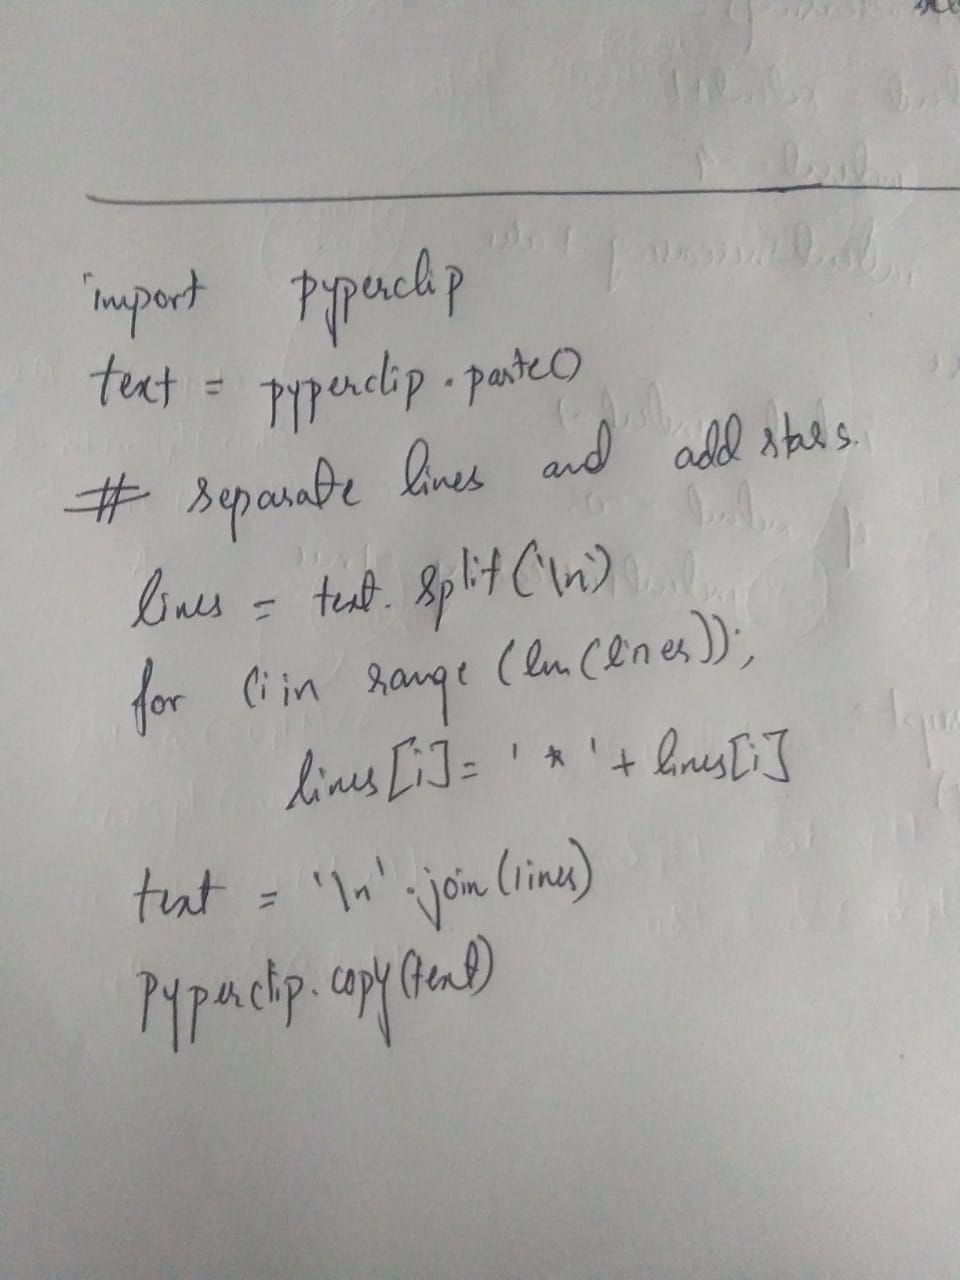 import pyperclip
text = pyperclip.paste()
# separate lines and add stars.
lines = text. split('\n')
for (i in range (len(lines)):
lines[i]= ' * ' + lines[i]
text = '\n'.join(lines)
pyperclip.copy(text)